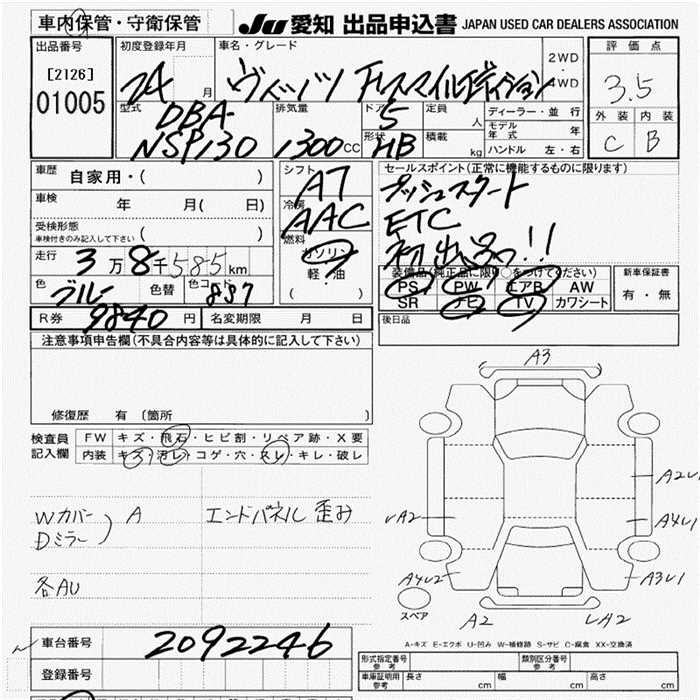 車内保管・守衛保管
JU 愛知 出品申込書 JAPAN USED CAR DEALERS ASSOCIATION
出品番号
[2126]
01005
初度登録年月
24 年 月
車名・グレード
ヴィッツ F スマイルエディション
2WD
・
4WD
評価点
3.5
外装 内装
C B
型式
DBA-
NSP130
排気量
1300 CC
ドア
5
形状
HB
定員
人
積載
kg
ディーラー・並行
モデル年式 年
ハンドル 左・右
車歴
自家用・( )
車検
年 月( 日)
受検形態
車検付きのみ記入して下さい ( )
走行
3万8千585km
色
ブルー
色替
色コード
887
R券 9840 円
名変期限 月 日
シフト
AT
冷房
AAC
燃料
ガソリン
軽・油
( )
セールスポイント(正常に機能するものに限ります)
プッシュスタート
ETC
初出品!!
装備品(純正品に限り○をつけてください)
PS PW エアB AW
SR ナビ TV カワシート
新車保証書
有・無
後日品
注意事項申告欄(不具合内容等は具体的に記入して下さい)
修復歴 有〔箇所
検査員
記入欄
FW キズ・飛石・ヒビ割・リペア跡・X要
内装 キズ・汚レ・コゲ・穴・スレ・キレ・破レ
Wカバー
Dミラー ) A
エンドパネル 歪み
各AU
A3
A2
A4U1
A2
A4U2
A3U1
A2
UA2
スペア
A-キズ E-エクボ U-凹み W-補修跡 S-サビ C-腐食 XX-交換済
車台番号
2092246
登録番号
形式指定番号
参考
類別区分番号
参考
車庫証明用
参考
長さ cm
幅 cm
高さ cm